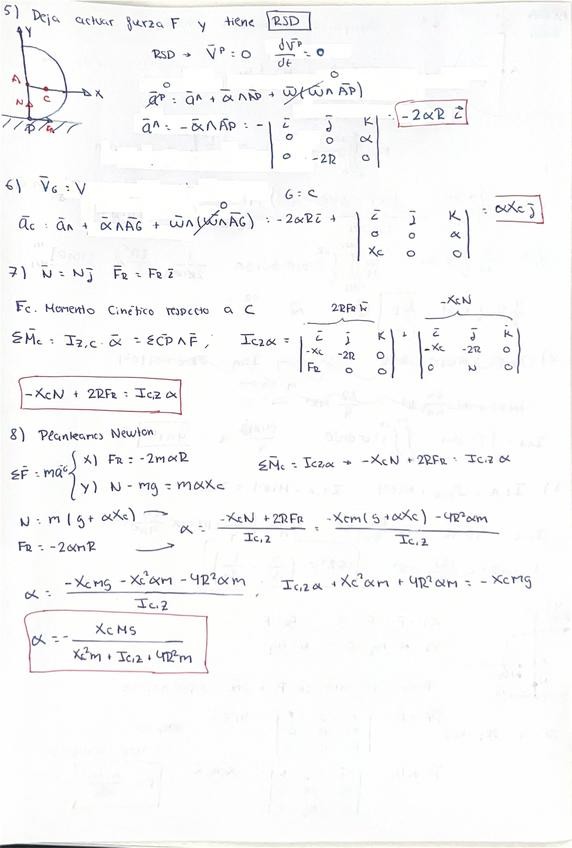 5) Deja actuar furza F y tiene RSD
Y
A
C
X
N
P
FR
RSD → V̄ᴾ = 0 dV̄ᴾ/dt = 0
āᴾ = āᴬ + ᾱ∧AP + ω̄∧(ω̄∧AP)
0
0
āᴬ = -ᾱ∧AP = - | i j K | 0 0 α | 0 -2R 0 | = -2αR i
6) V̄G = V G = C
āc = āᴬ + ᾱ∧AG + ω̄∧(ω̄∧AG) = -2αR i + | i j K | 0 0 α | Xc 0 0 | = αXc j
0
7) N̄ = N j F̄R = FR i
Fc. Momento Cinético respecto a C
2RFR k -XcN
ΣM̄c = Iz,c · ᾱ = ΣCP∧F̄ ; Iczα = | i j K | -Xc -2R 0 | FR 0 0 | + | i j k | -Xc -2R 0 | 0 N 0 |
-XcN + 2RFR = Ic,z α
8) Planteamos Newton
ΣF̄ = māᴳ { X) FR = -2mαR
Y) N - mg = mαXc
ΣM̄c = Iczα → -XcN + 2RFR = Ic,z α
N = m (g + αXc) →
FR = -2αmR →
α = (-XcN + 2RFR) / Ic,z = (-Xcm(g + αXc) - 4R²αm) / Ic,z
α = (-Xcmg - Xc²αm - 4R²αm) / Ic,z , Ic,z α + Xc²αm + 4R²αm = -Xcmg
α = - Xcmg / (Xc²m + Ic,z + 4R²m)